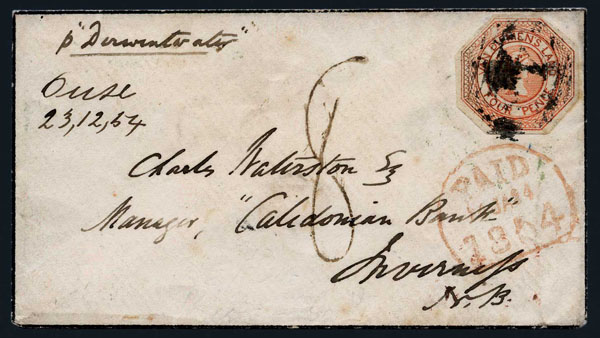 p "Derwentwater"
Ouse
23,12,54
VAN DIEMEN'S LAND
FOUR PENCE
8
Charles Waterston Esq
Manager, "Caledonian Bank"
Inverness
N.B.
PAID
1854